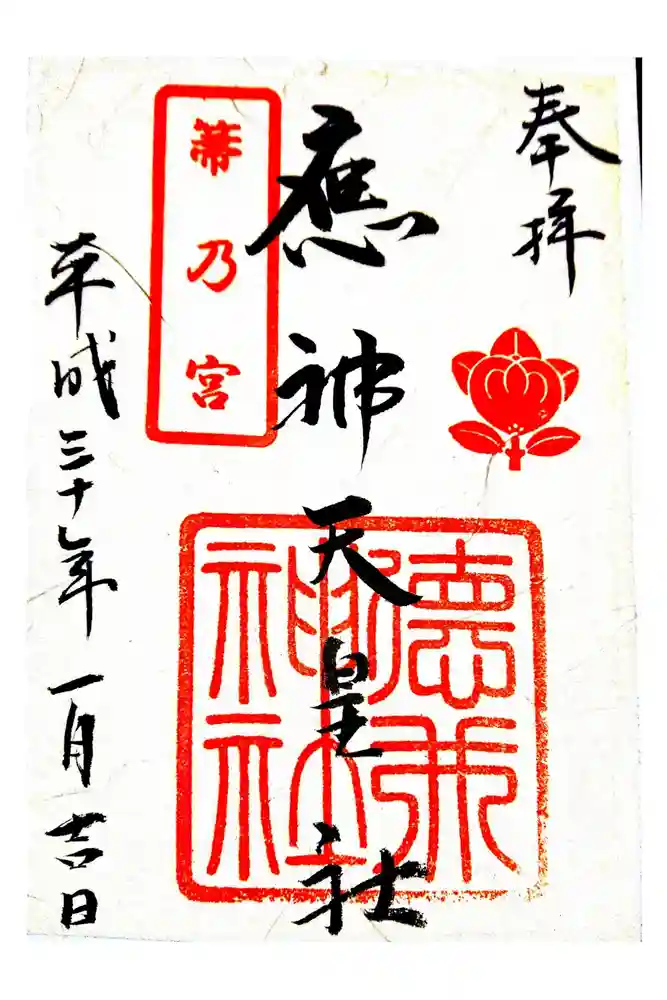 奉拝
應神天皇社
德井神社
箒乃宮
平成三十年一月吉日